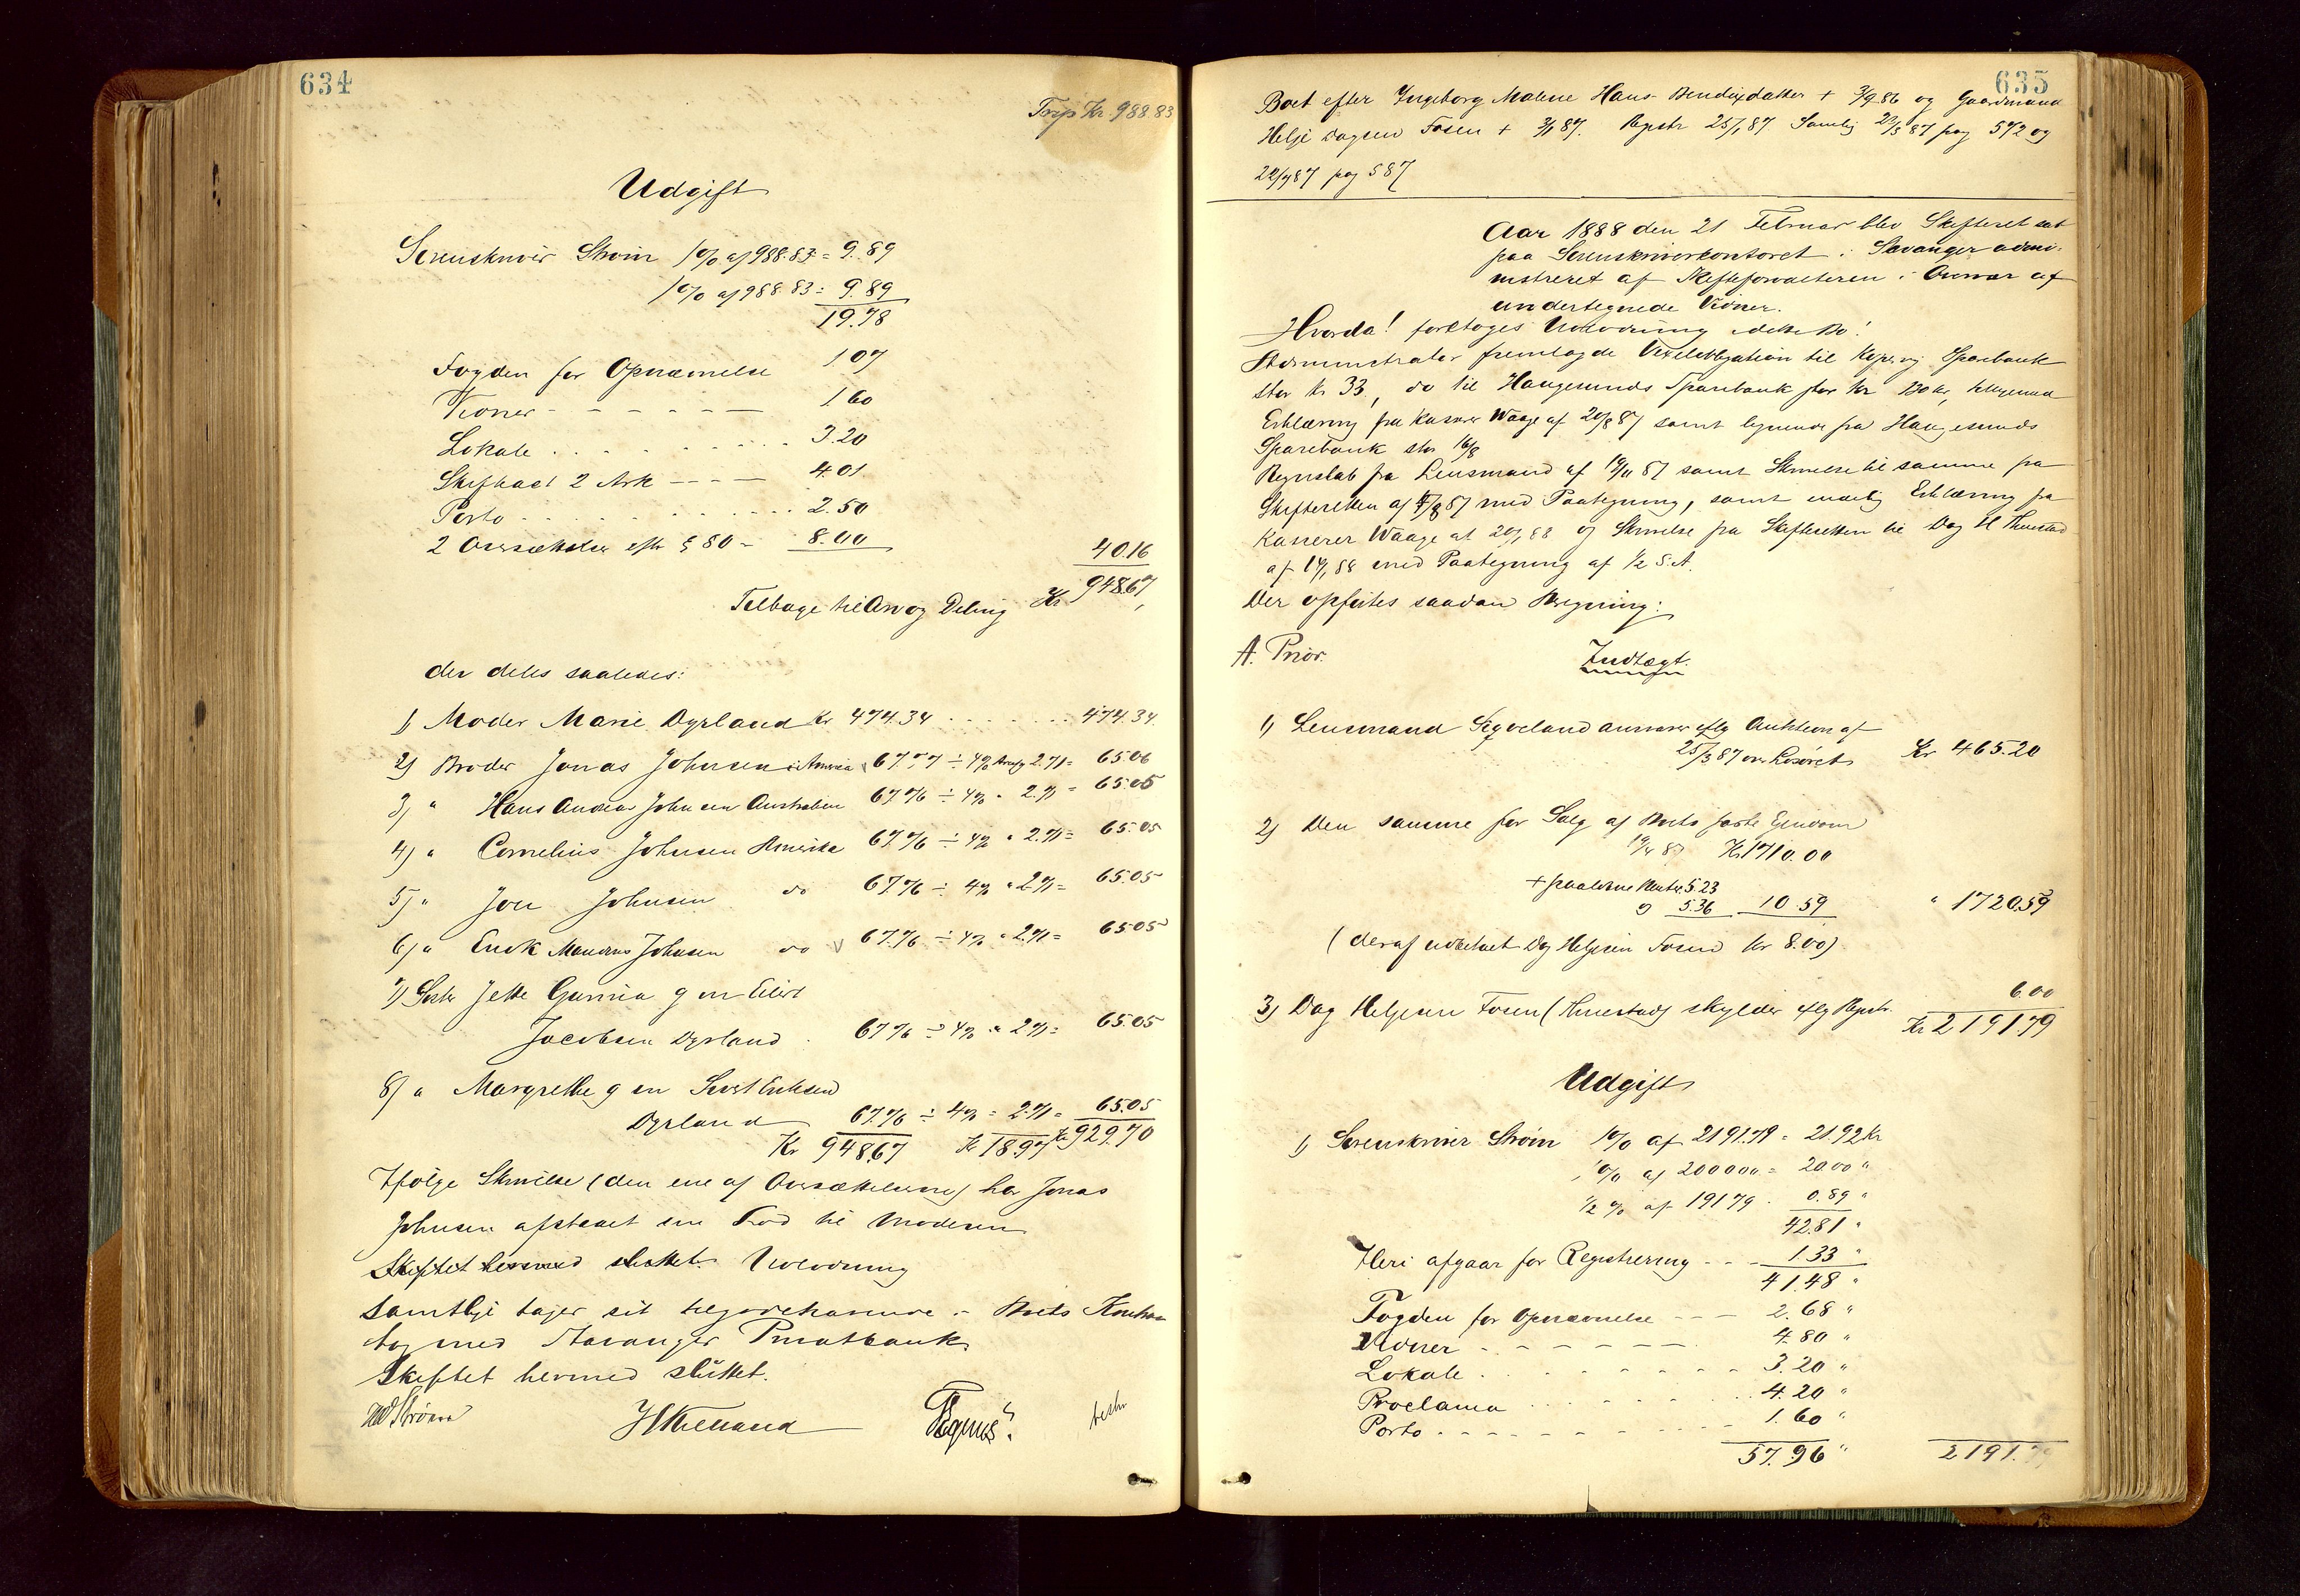 634
Trsp Kr. 988.83
Udgift
Sorenskriver Strøm 1 % af 988.83 = 9.89
1 % af 988.83 = 9.89
19.78
Fogden for Opnævnelse 1 07
Vidner - - - - - - 1 60
Lokale . . . . . . . 3.20
2 Ark - - - - 4.01
Porto . . . . . . . . 2.50
2 Oversættelser efter § 80 - 8.00 40.16
Tilbage til Arv og Deling Kr 948.67
der deles saaledes:
1) Moder Marie Dyrland Kr 474.34 . . . . . . . 474.34
2) Broder Jonas Johnsen i Amerika 67.77 ÷ 4% 2.71 = 65.06
3) " Hans Andreas Johnsen Australien 67.76 ÷ 4% " 2.71 = 65.05
4) " Cornelius Johnsen Amerika 67.76 ÷ 4% " 2.71 = 65.05
5) " Johnsen do 67.76 ÷ 4% " 2.71 = 65.05
6) " Johnsen do 67.76 ÷ 4% " 2.71 = 65.05
7) Søster Jette Gurina g m Eilert
Jacobsen Dyrland . 67.76 ÷ 4% " 2.71 = 65.05
8) " Margrethe g m Sivert Eriksen
Dyrland 67.76 ÷ 4% = 2.71 = 65.05
Kr 948.67 Kr 18.97 Kr 929.70
Ifølge Skrivelse (den ene af Oversættelserne) har Jonas
Johnsen afstaaet sin Lod til Moderen
Skiftet hermed sluttet. Udlodning
Samtlige tager sit tilgodehavende i Boets
med Stavanger Privatbank
Skiftet hermed sluttet.
Strøm
635
Boet efter Ingeborg Malene Hans Bendixdatter + 3/9.86 og Gaardmand
Helje Dagsen Fosen + 3/1 87. Registr 25/1 87 Samling 22/3 87 pag 572 og
22/7 87 pag 587
Aar 1888 den 21 Februar blev Skifteret sat
paa Sorenskriverkontoret i Stavanger admi-
nistreret af Skifteforvalteren i Overvær af
undertegnede Vidner.
Hvorda! foretoges Udlodning i dette Bo!
Administrator fremlagde Vexelobligation til Sparebank
stor Kr 33, do til Haugesunds Sparebank stor Kr
Erklæring fra Kasserer Waage af 20/8 87 samt lignende fra Haugesunds
Sparebank 16/8
Regnskab fra Lensmand af 19/11 87 samt Skrivelse til samme fra
Skifteretten af 87 med Paategning, samt endelig Erklæring fra
Kasserer Waage af 20/1 88 og Skrivelse fra Skifteretten til Dag H
af 88 med Paategning af 1/2 S.A.
Der opførtes saadan Beregning:
A. Prior. Indtægt.
1) Lensmand Sigveland ansvarer iflg Auktion af
25/3 87 over Løsøret Kr 465.20
2) Den samme for Salg af Boets faste Eiendom
19/4 87 Kr 1710.00
+ paaløbne Renter 5.23
og 5.36 10.59 " 1720.59
(deraf udbetalt Dag Heljesen Fosen Kr 8.00)
3) Dag Heljesen Fosen skylder iflg Registr. 6.00
Kr 2191.79
Udgift
1) Sorenskriver Strøm 1 % af 2191.79 = 21.92 Kr
1 % af 2000.00 = 20.00 "
1/2 % af 191.79 . 0.89 "
42.81 "
Heri afgaar for Registrering - - - 1.33 "
41.48 "
Fogden for Opnævnelse - - - 2.68 "
Vidner - - - - - - - 4.80 "
Lokale . . . . . . . 3.20 "
Proclama . . . . . . . 4.20 "
Porto - - - - - - - 1.60 "
57.96 " 2191.79